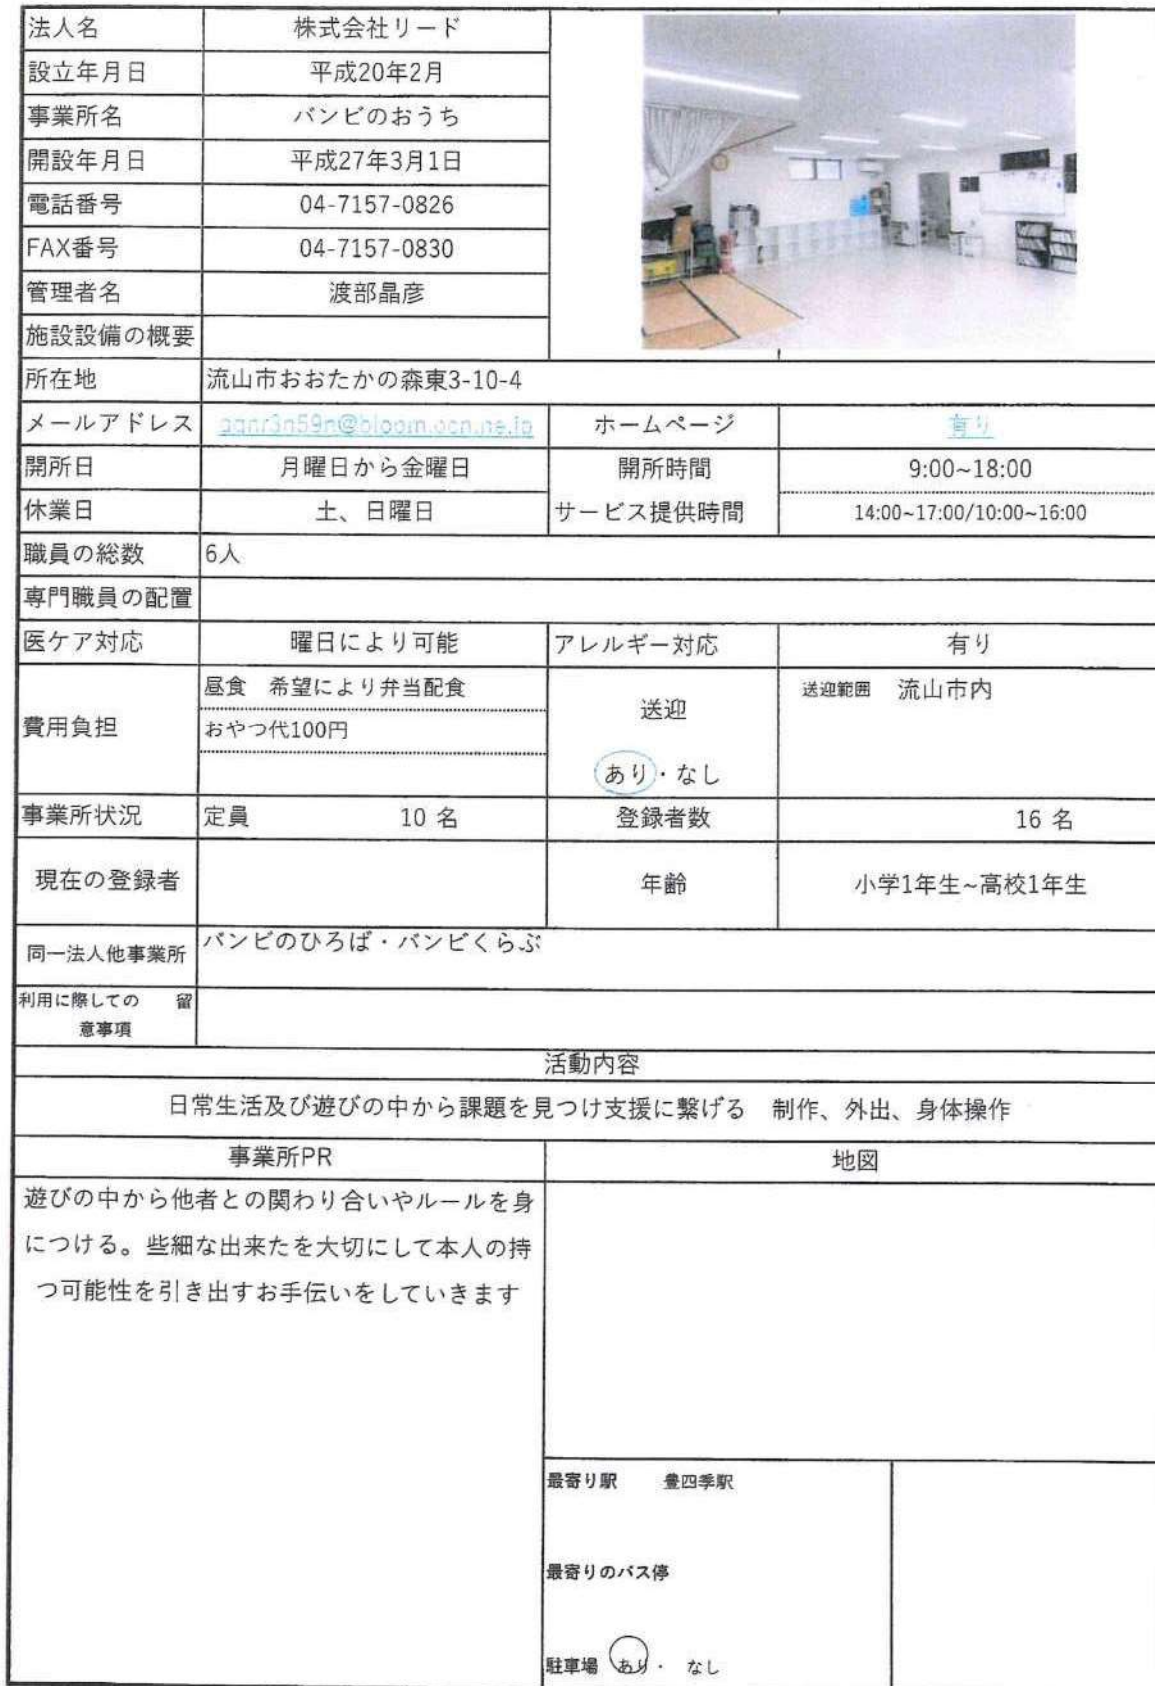 法人名 株式会社リード
設立年月日 平成20年2月
事業所名 バンビのおうち
開設年月日 平成27年3月1日
電話番号 04-7157-0826
FAX番号 04-7157-0830
管理者名 渡部晶彦
施設設備の概要
所在地 流山市おおたかの森東3-10-4
メールアドレス ホームページ 有り
開所日 月曜日から金曜日 開所時間 9:00~18:00
休業日 土、日曜日 サービス提供時間 14:00~17:00/10:00~16:00
職員の総数 6人
専門職員の配置
医ケア対応 曜日により可能 アレルギー対応 有り
費用負担 昼食 希望により弁当配食 送迎 送迎範囲 流山市内
おやつ代100円
あり・なし
事業所状況 定員 10 名 登録者数 16 名
現在の登録者 年齢 小学1年生~高校1年生
同一法人他事業所 バンビのひろば・バンビくらぶ
利用に際しての 留
意事項
活動内容
日常生活及び遊びの中から課題を見つけ支援に繋げる 制作、外出、身体操作
事業所PR 地図
遊びの中から他者との関わり合いやルールを身
につける。些細な出来たを大切にして本人の持
つ可能性を引き出すお手伝いをしていきます
最寄り駅 豊四季駅
最寄りのバス停
駐車場 あり・ なし